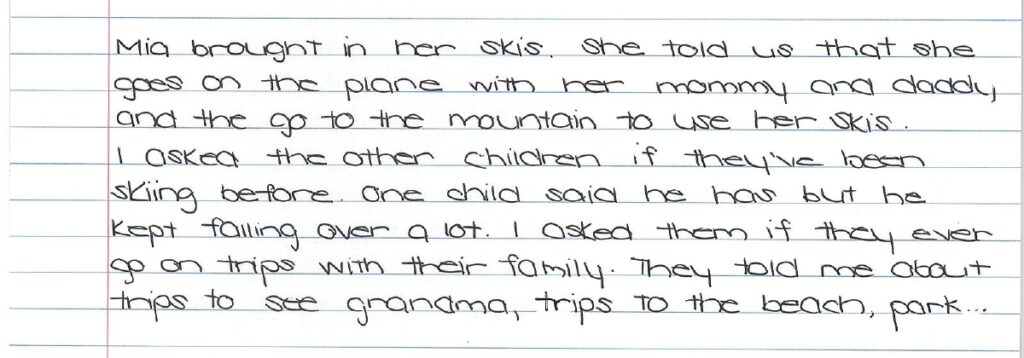 Mia brought in her skis. She told us that she
goes on the plane with her mommy and daddy,
and the go to the mountain to use her skis.
I asked the other children if they've been
skiing before. One child said he has but he
kept falling over a lot. I asked them if they ever
go on trips with their family. They told me about
trips to see grandma, trips to the beach, park...